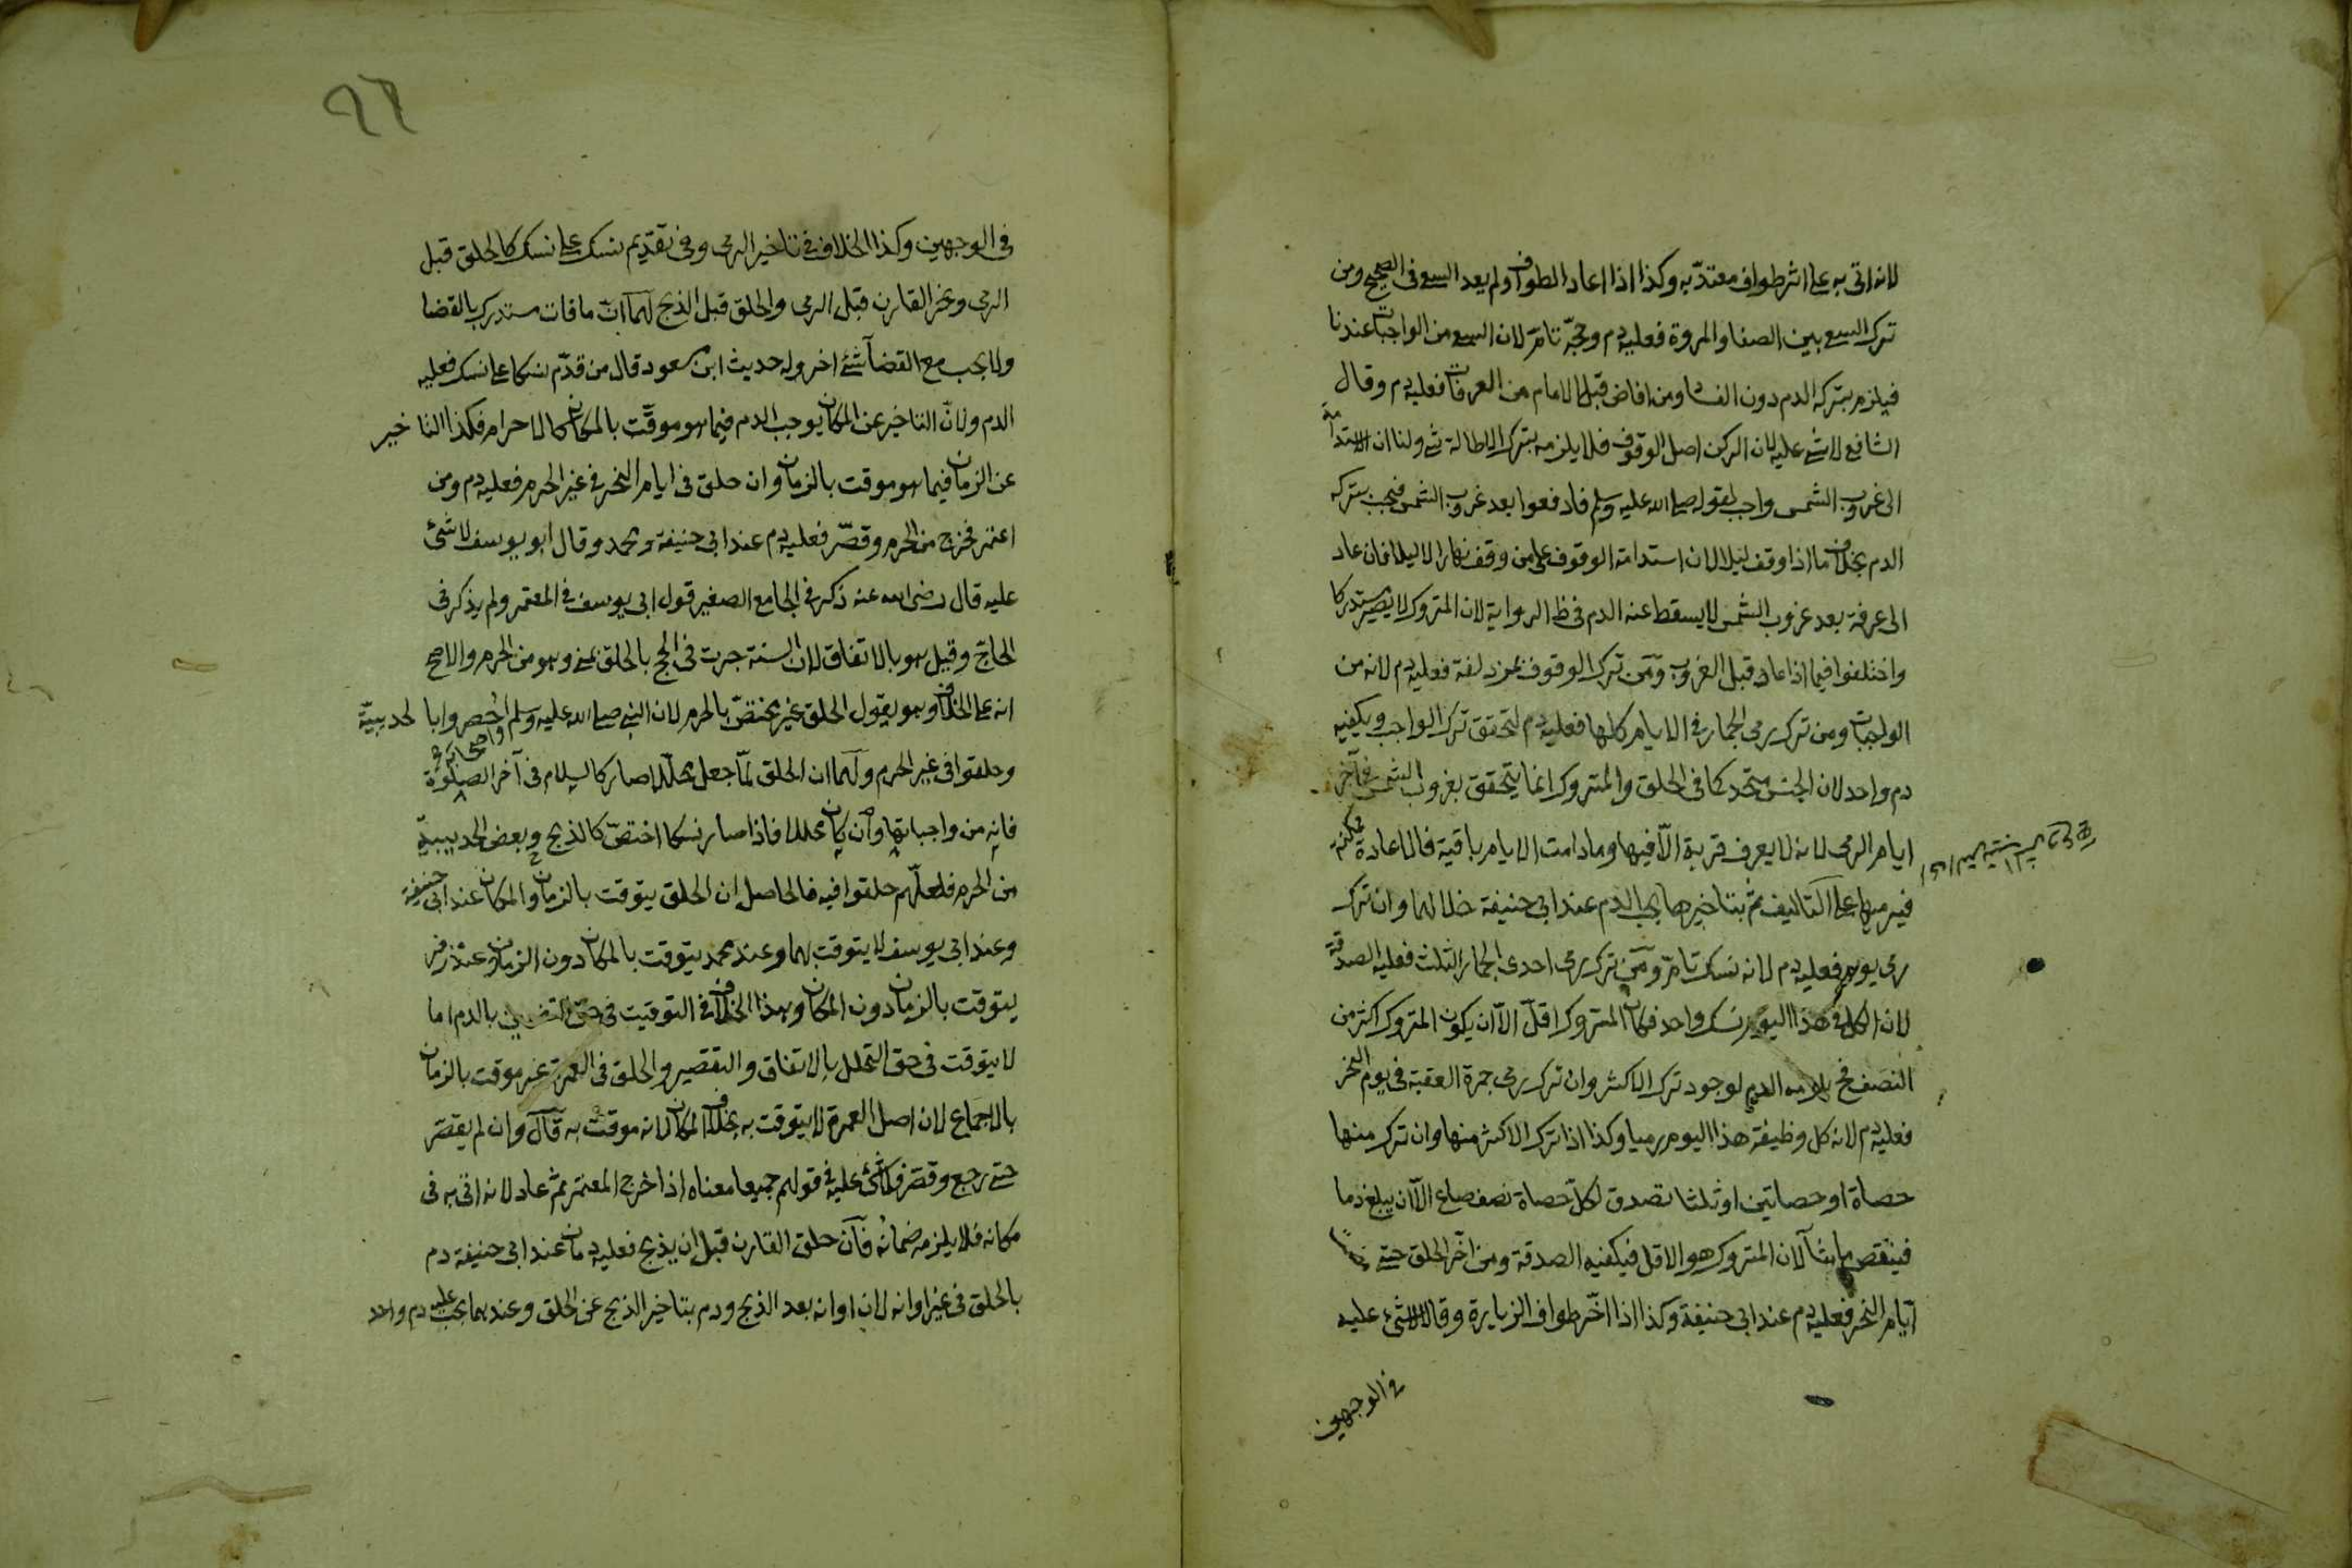 لانه اتى به على اثر طواف معتدّ به وكذا اذا اعاد الطواف ولم يعد السعى فى الصحيح ومن
ترك السعى بين الصفا والمروة فعليه دم وحجّه تامّ لان السعى من الواجبات عندنا
فيلزم بتركه الدم دون الفساد ومن افاض قبل الامام من العرفات فعليه دم وقال
الشافعى لا شئ عليه لان الركن اصل الوقوف فلا يلزمه بترك الاطالة شئ ولنا ان الاستدامة
الى غروب الشمس واجب لقوله صلى الله عليه وسلم فادفعوا بعد غروب الشمس فيجب بتركه
الدم بخلاف ما اذا وقف ليلا لان استدامة الوقوف على من وقف نهارا لا ليلا فان عاد
الى عرفة بعد غروب الشمس لا يسقط عنه الدم فى ظ الرواية لان المتروك لا يصير مستدركا
واختلفوا فيما اذا عاد قبل الغروب ومن ترك الوقوف بمزدلفة فعليه دم لانه من
الواجبات ومن ترك رمى الجمار فى الايام كلها فعليه دم لتحقق ترك الواجب ويكفيه
دم واحد لان الجنس متحد كما فى الحلق والمتروك انما يتحقق بغروب الشمس فى آخر
ايام الرمى لانه لا يعرف قربة الّا فيها وما دامت الايام باقية فالاعادة ممكنة
فيرميها على التاليف ثم بتاخيرها يجب الدم عند ابى حنيفة خلا لهما وان ترك
رمى يوم فعليه دم لانه نسك تامّ ومن ترك رمى احدى الجمار الثلث فعليه الصدقة
لان الكل فى هذا اليوم نسك واحد فكان المتروك اقلّ الّا ان يكون المتروك اكثر من
النصف فح يلزمه الدم لوجود ترك الاكثر وان ترك رمى جمرة العقبة فى يوم النحر
فعليه دم لانه كل وظيفة هذا اليوم رميا وكذا اذا ترك الاكثر منها وان ترك منها
حصاة او حصاتين او ثلثا تصدق لكلّ حصاة نصف صاع الّا ان يبلغ دما
فينقص ما شآ لان المتروك هو الاقل فيكفيه الصدقة ومن اخّر الحلق حتى مضت
ايّام النحر فعليه دم عند ابى حنيفة وكذا اذا اخّر طواف الزيارة وقالا لا شئ عليه
فى الوجهين
٩٦
فى الوجهين وكذا الخلاف فى تاخير الرمى وفى تقديم نسك على نسك كالحلق قبل
الرمى ونحر القارن قبل الرمى والحلق قبل الذبح لهما ان ما فات مستدرك بالقضا
ولا يجب مع القضآ شئ اخر وله حديث ابن مسعود قال من قدّم نسكا على نسك فعليه
الدم ولانّ التاخير عن المكان يوجب الدم فيما هو موقّت بالمكان كالاحرام فكذا التاخير
عن الزمان فيما هو موقت بالزمان وان حلق فى ايام النحر فى غير الحرم فعليه دم ومن
اعتمر فخرج من الحرم وقصّر فعليه دم عند ابى حنيفة ومحمد وقال ابو يوسف لا شئ
عليه قال رضى الله عنه ذكر فى الجامع الصغير قول ابى يوسف فى المعتمر ولم يذكر فى
الحاجّ وقيل هو بالاتفاق لان السنة جرت فى الحج بالحلق بمنى وهو من الحرم والاصح
انه على الخلاف وهو يقول الحلق غير مختصّ بالحرم لان النبى صلى الله عليه وسلم واصحابه احصروا بالحديبيّة
وحلقوا فى غير الحرم ولهما ان الحلق لمّا جعل محلّلا صار كالسلام فى آخر الصلوة
فانه من واجباتها وان كان محللا فاذا صار نسكا اختصّ كالذبح وبعض الحديبيّة
من الحرم فلعلّهم حلقوا فيه فالحاصل ان الحلق يتوقت بالزمان والمكان عند ابى حنيفة
وعند ابى يوسف لا يتوقت بهما وعند محمد يتوقت بالمكان دون الزمان وعند زفر
يتوقت بالزمان دون المكان وهذا الخلاف فى التوقيت فى حق التضمين بالدم اما
لا يتوقت فى حق التحلل بالاتفاق والتقصير والحلق فى العمرة غير موقت بالزمان
بالاجماع لان اصل العمرة لا يتوقت به بخلاف المكان لانه موقت به قال وان لم يقصّر
حتى رجع وقصّر فلا شئ عليه فى قولهم جميعا معناه اذا خرج المعتمر ثم عاد لانه اتى به فى
مكانه فلا يلزمه ضمانه فان حلق القارن قبل ان يذبح فعليه دمان عند ابى حنيفة دم
بالحلق فى غير اوانه لان اوانه بعد الذبح ودم بتاخير الذبح عن الحلق وعندهما يجب عليه دم واحد